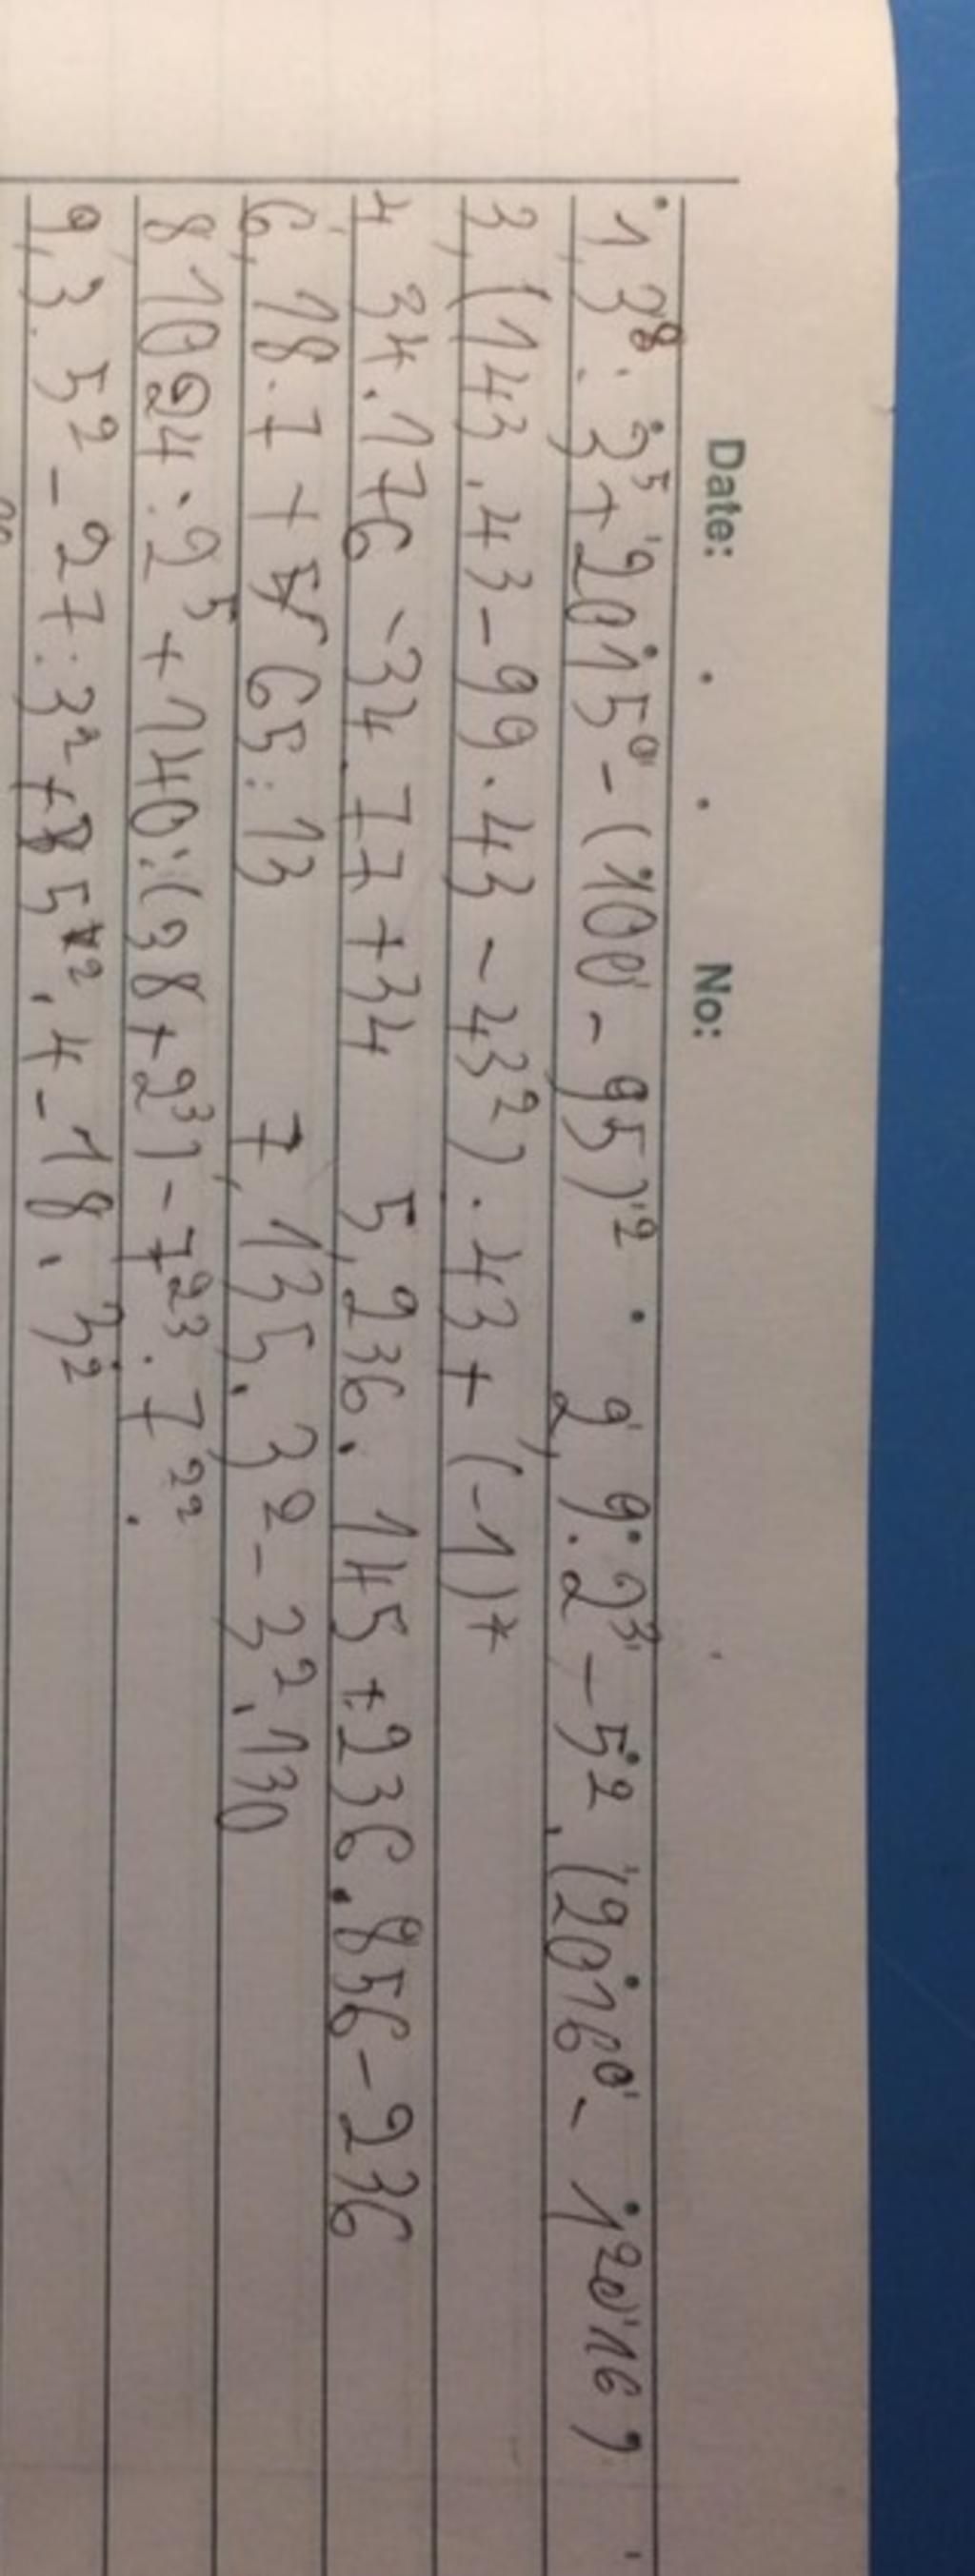 Date: No:
1, 3⁸ : 3⁵ + 2015⁰ - (100 - 95)² 2, 9 . 2³ - 5² . (2016⁰ - 1²⁰¹⁶)
3, (143 . 43 - 99 . 43 - 43²) . 43 + (-1)*
4, 34 . 176 - 34 . 77 + 34 5, 236 . 145 + 236 . 856 - 236
6, 18 . 7 + 65 : 13 7, 135 . 3² - 3² . 130
8, 1024 : 2⁵ + 140 : (38 + 2³) - 7²³ : 7²²
9, 3 . 5² - 27 : 3² + 5² . 4 - 18 . 3²